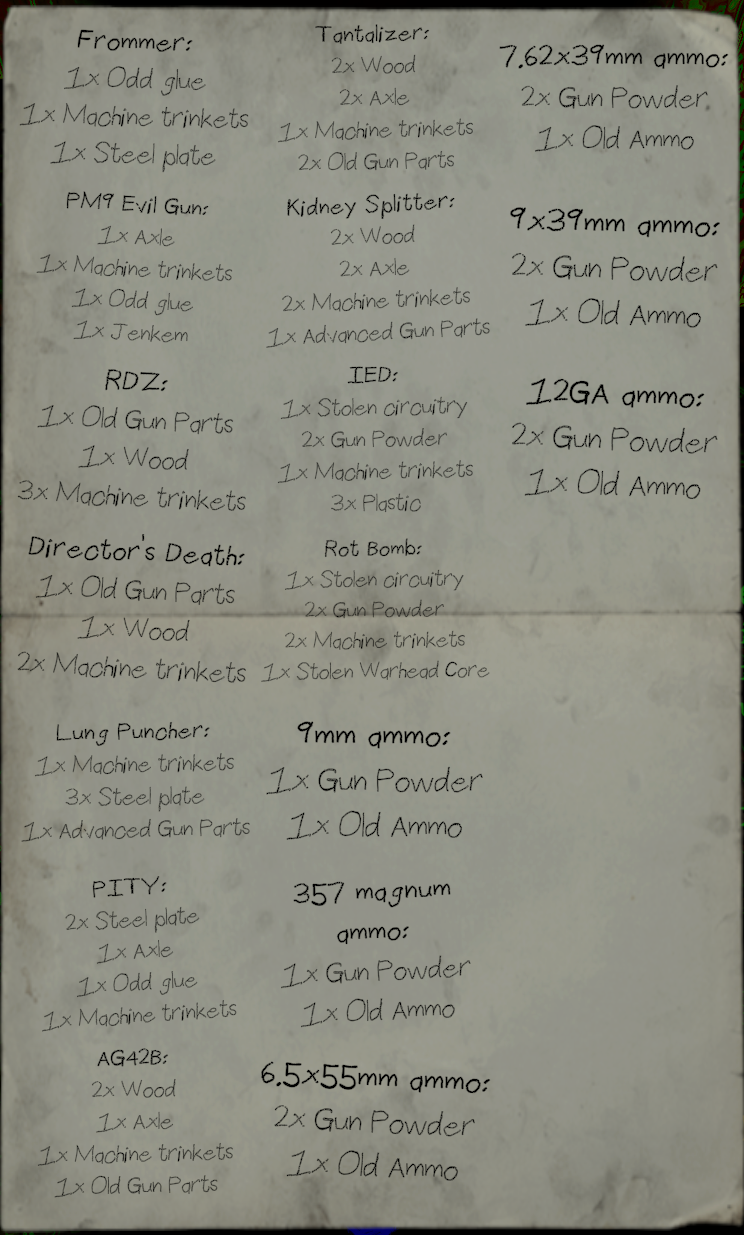 Frommer:
1x Odd glue
1x Machine trinkets
1x Steel plate
PM9 Evil Gun:
1x Axle
1x Machine trinkets
1x Odd glue
1x Jenkem
RDZ:
1x Old Gun Parts
1x Wood
3x Machine trinkets
Director's Death:
1x Old Gun Parts
1x Wood
2x Machine trinkets
Lung Puncher:
1x Machine trinkets
3x Steel plate
1x Advanced Gun Parts
PITY:
2x Steel plate
1x Axle
1x Odd glue
1x Machine trinkets
AG42B:
2x Wood
1x Axle
1x Machine trinkets
1x Old Gun Parts
Tantalizer:
2x Wood
2x Axle
1x Machine trinkets
2x Old Gun Parts
Kidney Splitter:
2x Wood
2x Axle
2x Machine trinkets
1x Advanced Gun Parts
IED:
1x Stolen circuitry
2x Gun Powder
1x Machine trinkets
3x Plastic
Rot Bomb:
1x Stolen circuitry
2x Gun Powder
2x Machine trinkets
1x Stolen Warhead Core
9mm ammo:
1x Gun Powder
1x Old Ammo
357 magnum
ammo:
1x Gun Powder
1x Old Ammo
6.5x55mm ammo:
2x Gun Powder
1x Old Ammo
7.62x39mm ammo:
2x Gun Powder
1x Old Ammo
9x39mm ammo:
2x Gun Powder
1x Old Ammo
12GA ammo:
2x Gun Powder
1x Old Ammo